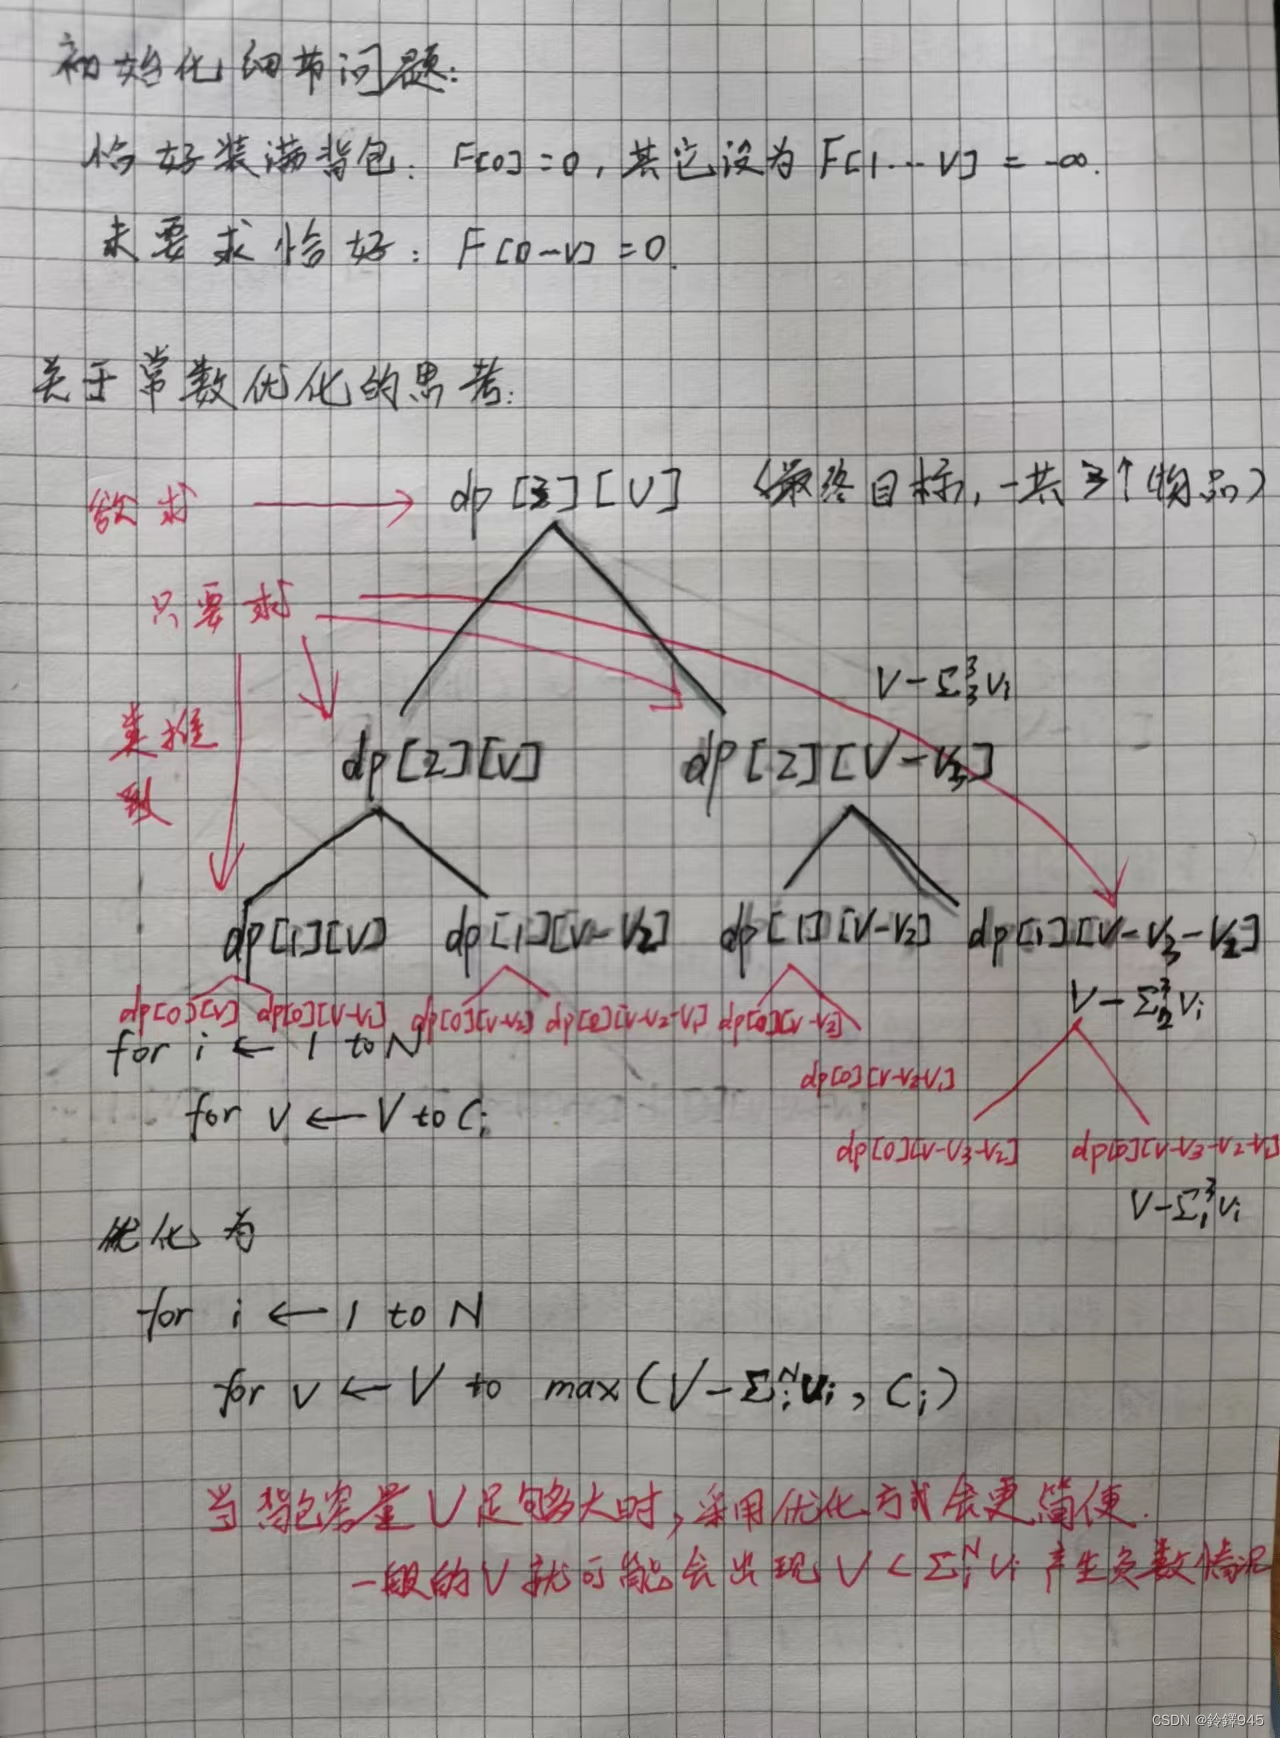 初始化细节问题:
恰好装满背包: F[0]=0, 其它设为 F[1…V] = -∞.
未要求恰好: F[0-V]=0.
关于常数优化的思考:
欲求 → dp[3][V] (最终目标,一共3个物品)
只要求
V-Σ³₃vᵢ
类推
到
dp[2][V] dp[2][V-V₃]
dp[1][V] dp[1][V-V₂] dp[1][V-V₂] dp[1][V-V₃-V₂]
V-Σ³₂Vᵢ
dp[0][V] dp[0][V-V₁] dp[0][V-V₂] dp[0][V-V₂-V₁] dp[0][V-V₂]
for i ← 1 to N
dp[0][V-V₂-V₁]
for v ← V to Cᵢ
dp[0][V-V₃-V₂] dp[0][V-V₃-V₂-V₁]
V-Σ³₁vᵢ
优化为
for i ← 1 to N
for v ← V to max(V-Σᵢᴺvᵢ, Cᵢ)
当背包容量V足够大时,采用优化方式会更简便.
一般的V就可能会出现V<Σᵢᴺvᵢ产生负数情况
CSDN @鈴鐸945